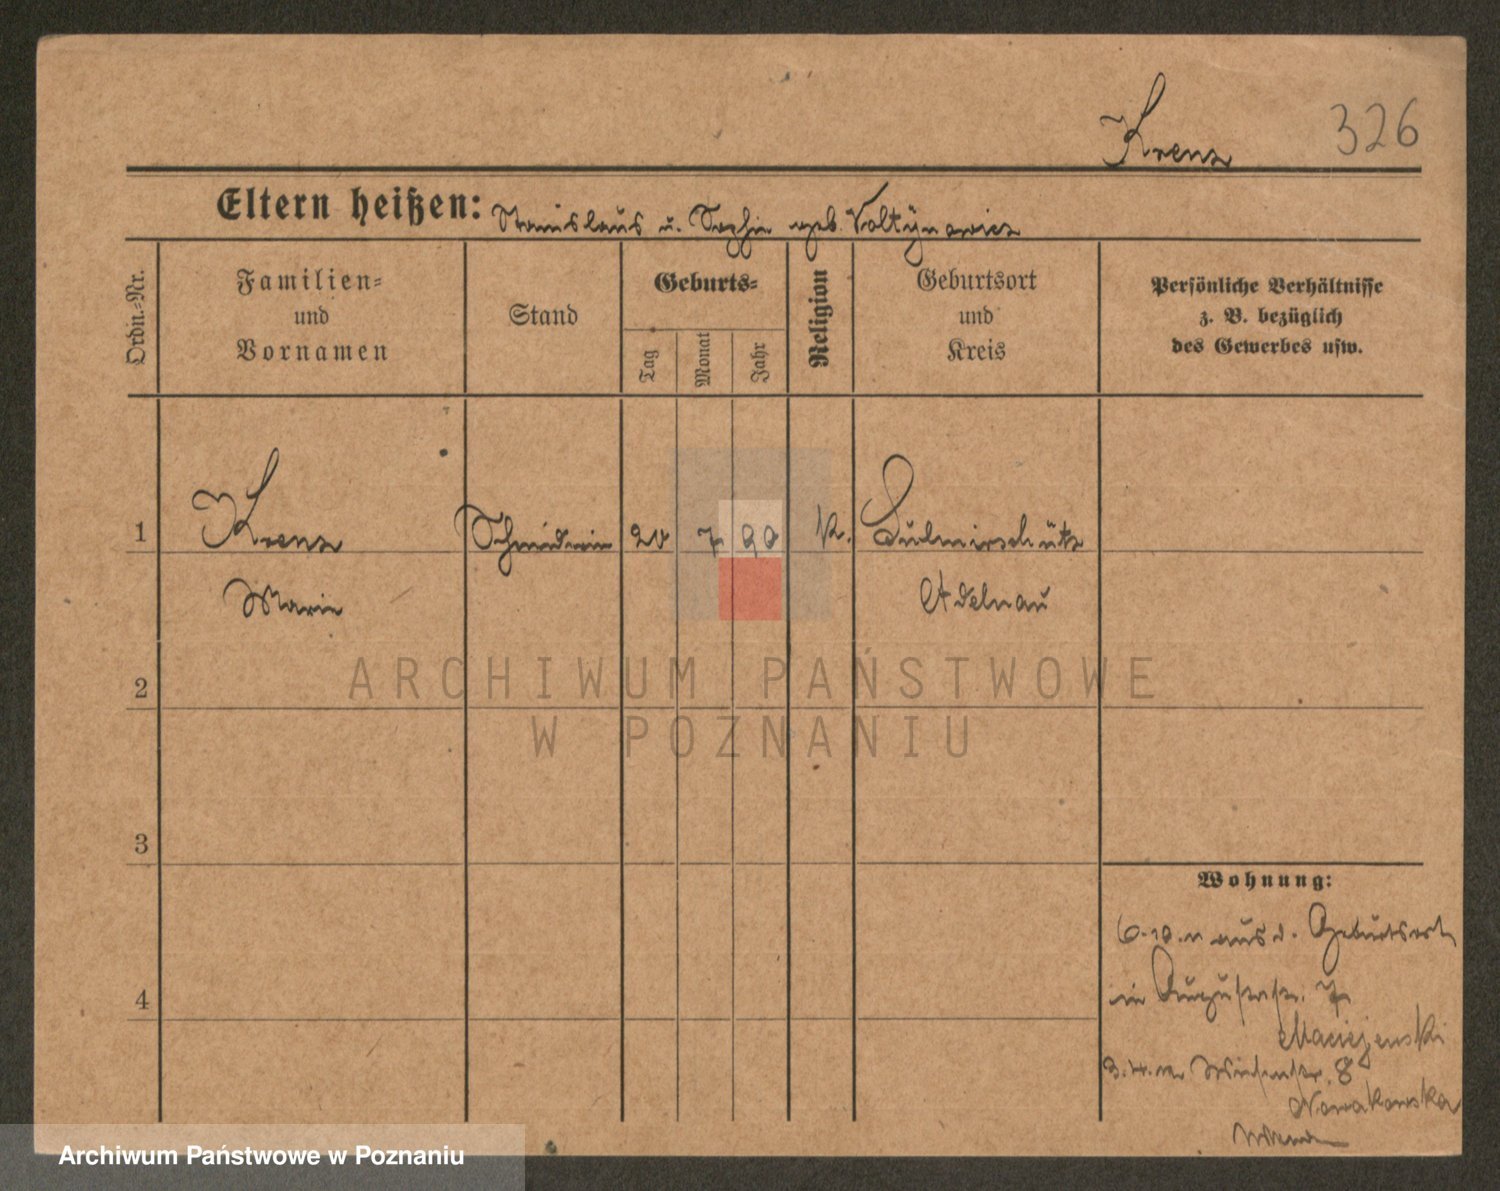 Krenz 326
Eltern heißen: Stanislaus u. Sophie geb. Voltynowicz
Ordn.=Nr. Familien= und Vornamen Stand Geburts= Tag Monat Jahr Religion Geburtsort und Kreis Persönliche Verhältnisse z. B. bezüglich des Gewerbes usw.
1 Krenz Schneiderin 20 7 90 k. Sulmirschütz
Marie Adelnau
2
3
4
Wohnung:
6.10. aus d. Geburtsort
in Augustastr. 7
Maciejewski
3.4. Wiesenstr. 8
Nowakowska
ARCHIWUM PAŃSTWOWE
W POZNANIU
Archiwum Państwowe w Poznaniu